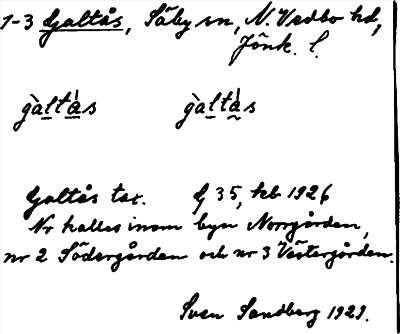 1-3 Galtås, Säby sn, N. Vedbo hd,
Jönk. l.
gàltås gàltås
Galtås tax. Gj 35, keb 1926
Nr kallas inom byn Norrgården,
nr 2 Södergården och nr 3 Västergården.
Sven Sandberg 1929.